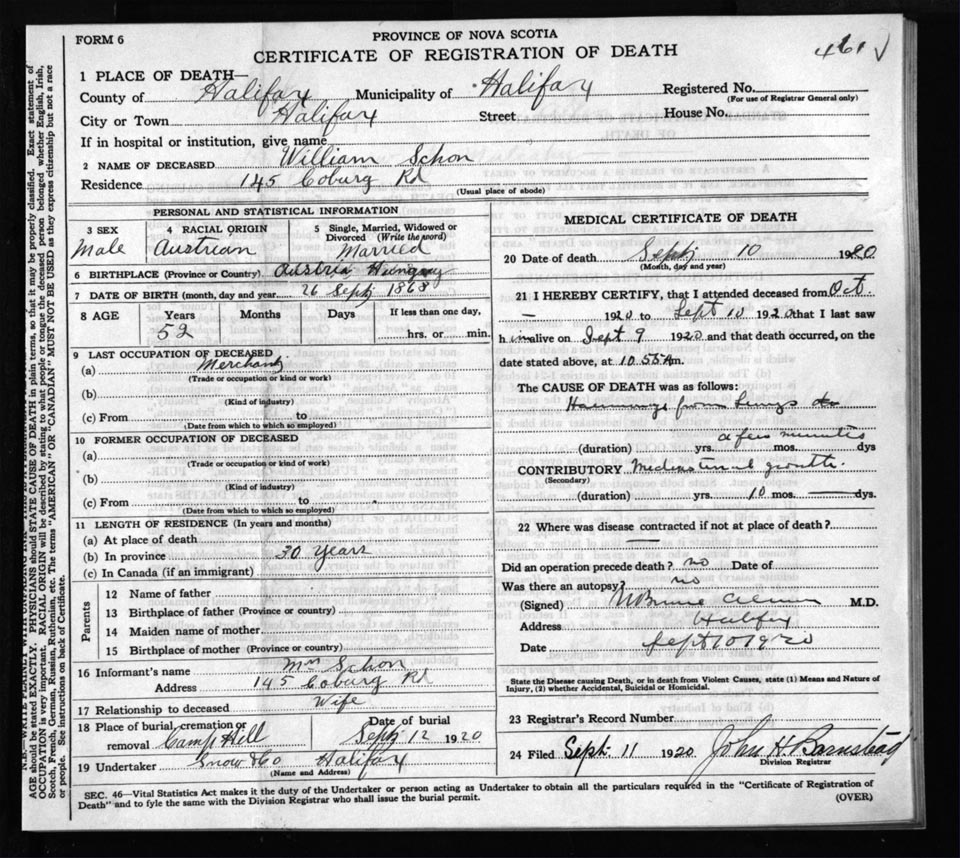 FORM 6
PROVINCE OF NOVA SCOTIA
CERTIFICATE OF REGISTRATION OF DEATH
461
1 PLACE OF DEATH—
County of Halifax Municipality of Halifax Registered No.
(For use of Registrar General only)
City or Town Halifax Street House No.
If in hospital or institution, give name
2 NAME OF DECEASED William Schon
Residence 145 Coburg Rd
(Usual place of abode)
PERSONAL AND STATISTICAL INFORMATION
3 SEX 4 RACIAL ORIGIN 5 Single, Married, Widowed or
Divorced (Write the word)
Male Austrian Married
6 BIRTHPLACE (Province or Country) Austria Hungary
7 DATE OF BIRTH (month, day and year) 26 Sept 1868
8 AGE Years Months Days If less than one day,
52 hrs. or min.
9 LAST OCCUPATION OF DECEASED
(a) Merchant
(Trade or occupation or kind or work)
(b)
(Kind of industry)
(c) From to
(Date from which to which so employed)
10 FORMER OCCUPATION OF DECEASED
(a)
(Trade or occupation or kind of work)
(b)
(Kind of industry)
(c) From to
(Date from which to which so employed)
11 LENGTH OF RESIDENCE (In years and months)
(a) At place of death
(b) In province 30 years
(c) In Canada (if an immigrant)
Parents
12 Name of father
13 Birthplace of father (Province or country)
14 Maiden name of mother
15 Birthplace of mother (Province or country)
16 Informant's name Mrs Schon
Address 145 Coburg Rd
17 Relationship to deceased Wife
18 Place of burial, cremation or Date of burial
removal Camp Hill Sept 12 1920
19 Undertaker Snow & Co Halifax
(Name and Address)
MEDICAL CERTIFICATE OF DEATH
20 Date of death Sept 10 1920
(Month, day and year)
21 I HEREBY CERTIFY, that I attended deceased from Oct.
— 1920 to Sept 10 1920 that I last saw
him alive on Sept 9 1920 and that death occurred, on
date stated above, at 10.55 Am.
The CAUSE OF DEATH was as follows:
Haemorrhage from lungs
a few minutes
(duration) yrs. mos. dys
CONTRIBUTORY Mediastinal growth.
(Secondary)
(duration) yrs. 10 mos. — dys.
22 Where was disease contracted if not at place of death?
—
Did an operation precede death? no Date of
Was there an autopsy? no
(Signed) M.D.
Address Halifax
Date Sept 10 1920
State the Disease causing Death, or in death from Violent Causes, state (1) Means and Nature of
Injury, (2) whether Accidental, Suicidal or Homicidal.
23 Registrar's Record Number
24 Filed Sept. 11 1920 John H Barnstead
Division Registrar
SEC. 46—Vital Statistics Act makes it the duty of the Undertaker or person acting as Undertaker to obtain all the particulars required in the "Certificate of Registration of
Death" and to fyle the same with the Division Registrar who shall issue the burial permit. (OVER)
AGE should be stated EXACTLY. PHYSICIANS should STATE CAUSE OF DEATH in plain terms, so that it may be properly classified. Exact statement of
OCCUPATION is very important. RACIAL ORIGIN will be described by stating to what people or tongue the deceased person belonged whether English, Irish,
Scotch, French, German, Russian, Ruthenian, etc. The terms "AMERICAN" OR "CANADIAN" MUST NOT BE USED as they express citizenship but not a race
or people. See instructions on back of Certificate.